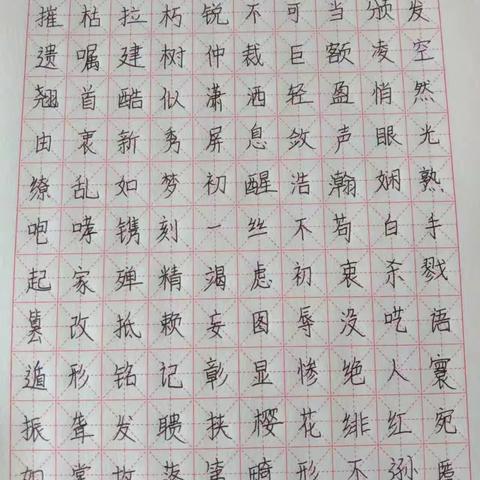 摧枯拉朽锐不可当颁发
遗嘱建树仲裁巨额凌空
翘首酷似潇洒轻盈悄然
由衷新秀屏息敛声眼光
缭乱如梦初醒浩瀚娴熟
咆哮镌刻一丝不苟白手
起家殚精竭虑初衷杀戮
篡改抵赖妄图辱没呓语
遁形铭记彰显惨绝人寰
振聋发聩挟樱花绯红宛
如掌故落第畸形不逊匿